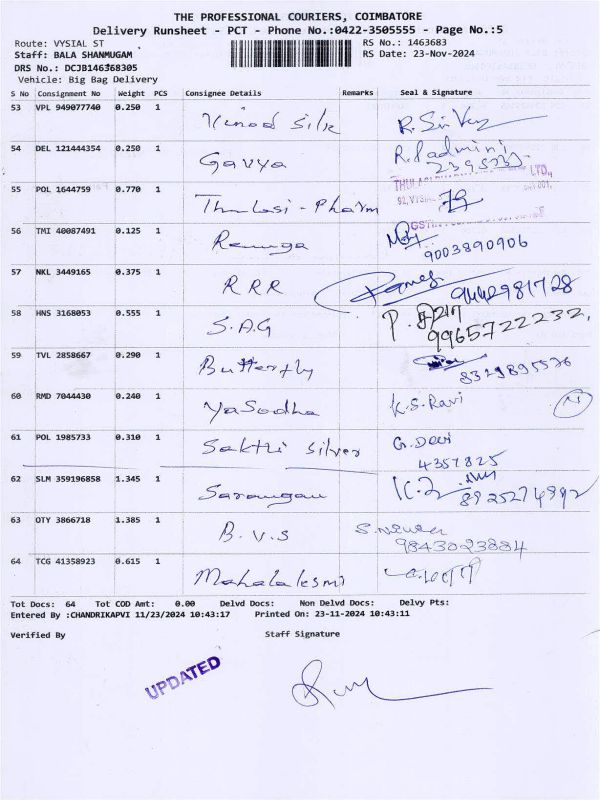 THE PROFESSIONAL COURIERS, COIMBATORE
Delivery Runsheet - PCT - Phone No.:0422-3505555 - Page No.:5
Route: VYSIAL ST RS No.: 1463683
Staff: BALA SHANMUGAM RS Date: 23-Nov-2024
DRS No.: DCJB146368305
Vehicle: Big Bag Delivery
S No Consignment No Weight PCS Consignee Details Remarks Seal & Signature
53 VPL 949077740 0.250 1 Vinod Silk
54 DEL 121444354 0.250 1 Gavya R. Padmini
55 POL 1644759 0.770 1 Thulasi - Pharm
56 TMI 40087491 0.125 1 Renuga 9003890906
57 NKL 3449165 0.375 1 RRR 9442981728
58 HNS 3168053 0.555 1 S.A.G 9965722232.
59 TVL 2858667 0.290 1 Butterfly 8329895576
60 RMD 7044430 0.240 1 Yasodha K.S. Ravi
61 POL 1985733 0.310 1 Sakthi Silver G. Devi
4357825
62 SLM 359196858 1.345 1 Sarangan 8925274992
63 OTY 3866718 1.385 1 B.V.S
9843023884
64 TCG 41358923 0.615 1 Mahalaksmi
Tot Docs: 64 Tot COD Amt: 0.00 Delvd Docs: Non Delvd Docs: Delvy Pts:
Entered By :CHANDRIKAPVI 11/23/2024 10:43:17 Printed On: 23-11-2024 10:43:11
Verified By Staff Signature
UPDATED